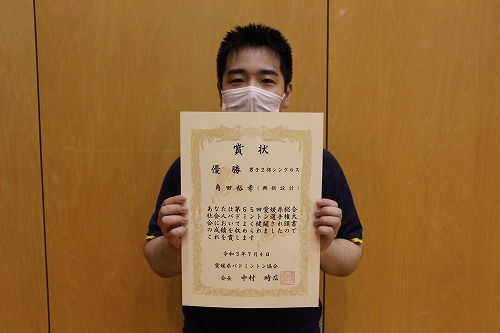 賞状
優勝 男子2部シングルス
角田裕孝(興新設計)
あなたは第65回愛媛県総合
社会人バドミントン選手権大
会においてよく健闘され頭書
の成績を収められましたので
これを賞します
令和3年7月4日
愛媛県バドミントン協会
会長 中村 時広